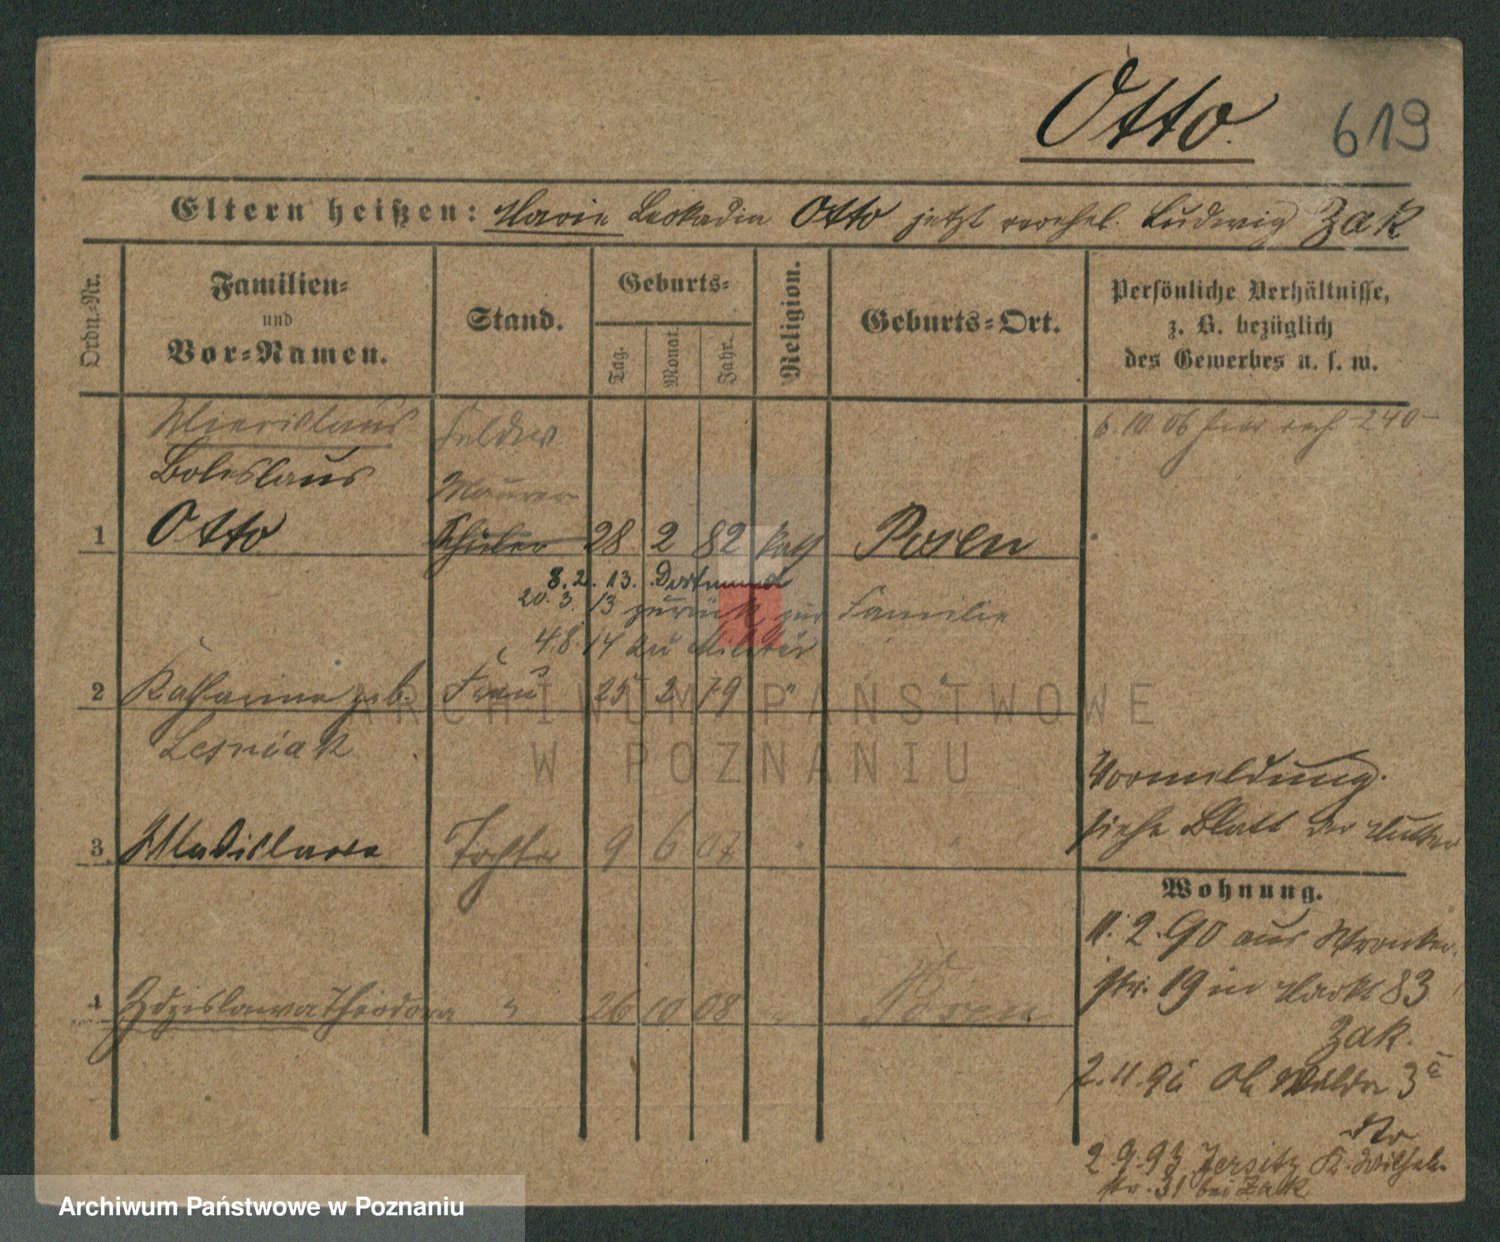 Otto.
619
Eltern heißen: Marie Leokadia Otto jetzt verehel. Ludwig Zak
Ordn.-Nr.
Familien-
und
Vor-Namen.
Stand.
Geburts-
Tag.
Monat.
Jahr.
Religion.
Geburts-Ort.
Persönliche Verhältnisse,
z. B. bezüglich
des Gewerbes u. s. w.
6.10.06 240
Boleslaus
Maurer
1 Otto Schüler 28 2 82 kath Posen
8.2.13. Dortmund
20.3.13 zurück zur Familie
4.8.14 zu Militär
2 Katharina geb. Frau 25 2 79 " "
Lesniak
Vormeldung.
siehe Blatt der Mutter
3 Wladislawa Tochter 9 6 07 " "
Wohnung.
11.2.90 aus Wronker
str. 19 in Markt 83
Zak.
4 Zdzislawa Theodora " 26 10 08 " Posen
2.11.91 Ob Wilda 3a
2.9.93 Jersitz K. Wilhelm
str. 31 bei Zak
ARCHIWUM PAŃSTWOWE
W POZNANIU
Archiwum Państwowe w Poznaniu